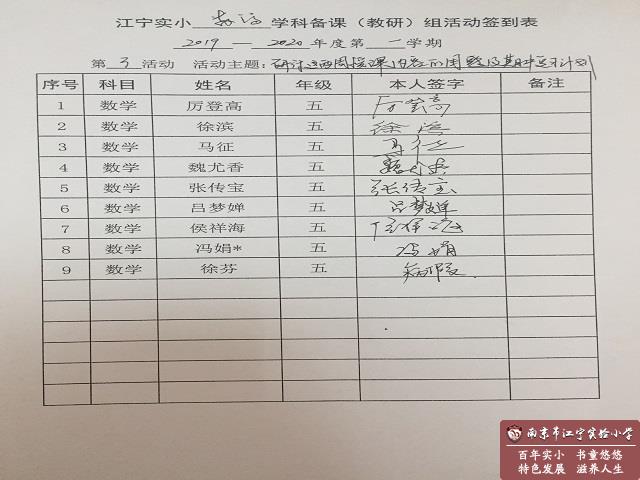 江宁实小 数学 学科备课（教研）组活动签到表
2019 — 2020 年度第 一 学期
第 3 活动 活动主题：研讨这两周授课
序号 科目 姓名 年级 本人签字 备注
1 数学 厉登高 五 厉登高
2 数学 徐滨 五 徐滨
3 数学 马征 五 马征
4 数学 魏尤香 五 魏尤香
5 数学 张传宝 五 张传宝
6 数学 吕梦婵 五 吕梦婵
7 数学 侯祥海 五
8 数学 冯娟* 五 冯娟
9 数学 徐芬 五
南京市江宁实验小学
百年实小 书童悠悠
特色发展 滋养人生